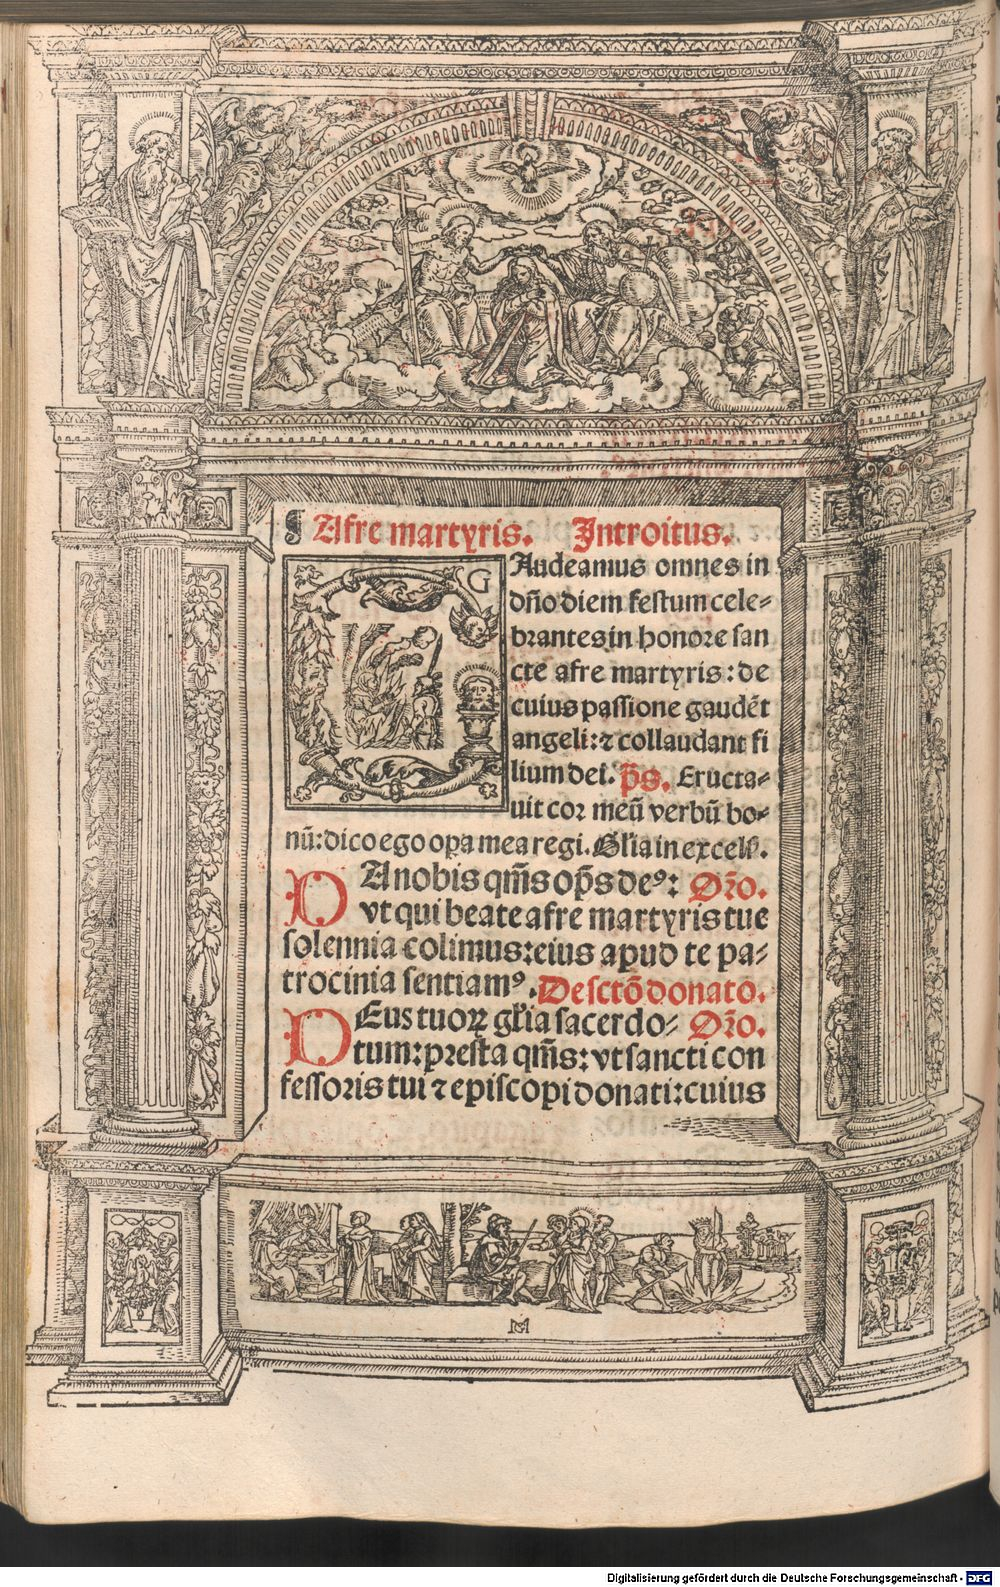 ¶ Afre martyris. Introitus.
GAudeamus omnes in
dño diem festum cele⸗
brantes in honore san
cte afre martyris: de
cuius passione gaudẽt
angeli: ⁊ collaudant fi
lium dei. p̃s. Eructa⸗
uit cor meũ verbũ bo⸗
nũ: dico ego oꝑa mea regi. Gl̃ia in excels̃.
DA nobis qm̃s op̃s deꝰ: Oꝛ̃o.
vt qui beate afre martyris tue
solennia colimus: eius apud te pa⸗
trocinia sentiamꝰ. De sctõ donato.
DEus tuoꝝ gl̃ia sacerdo⸗ Oꝛ̃o.
tum: pꝛesta qm̃s: vt sancti con
fessoris tui ⁊ episcopi donati: cuius
MG
Digitalisierung gefördert durch die Deutsche Forschungsgemeinschaft - DFG